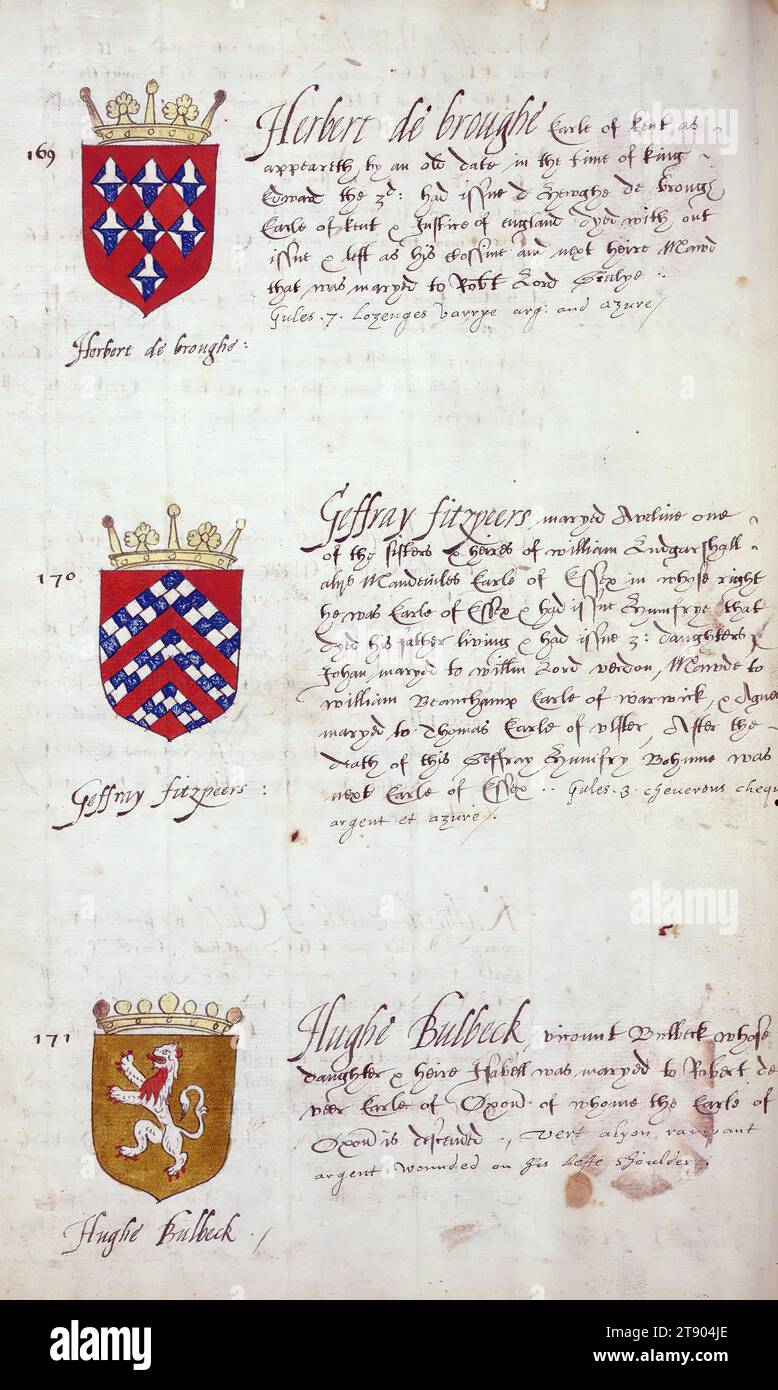 169
Herbert de broughe Earle of kent as
appeareth by an old date in the time of king
Edward the 3d: had issue Hewghe de brough
Earle of kent & Justice of england dyed with out
issue & left as his cossine and next heire Mawd
that was maryed to Robt Lord
Gules .7. Lozenges varrye arg: and azure/
Herbert de broughe:
170
Geffray fitzpeers, maryed Aveline one
of the sisters & heires of william Ludgarshall
Mandeviles Earle of Essex in whose right
he was Earle of Essex & had issue Humfrye that
dyed his father living & had issue 3: daughters
Johan maryed to willm Lord verdon, Mawde to
william Beauchamp Earle of warwick, & Agnes
maryed to Thomas Earle of vlster, After the
death of this Geffray Humfry Bohume was
next Earle of Essex .. Gules .3. cheverons chequ
argent et azure/.
Geffray fitzpeers:
171
Hughe Bulbeck, vicount Bulbeck whose
daughter & heire Isabell was maryed to Robert de
veer Earle of Oxon of whome the Earle of
Oxon is descended., vert a lyon rampant
argent wounded on his lefte shoulder.
Hughe Bulbeck./
alamy
alamy
alamy
Image ID: 2T904JE
www.alamy.com